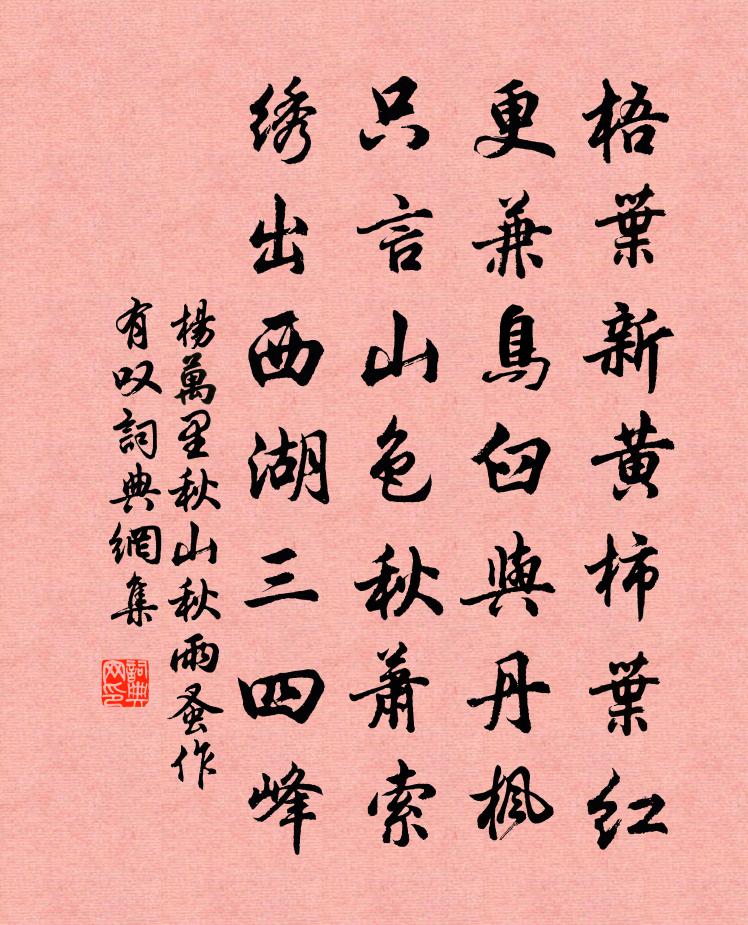 梧葉新黄柿葉红
更兼烏臼與丹楓
只言山色秋萧索
绣出西湖三四峰
楊萬里秋山秋雨蚤作
有叹詞典網集
詞典网印